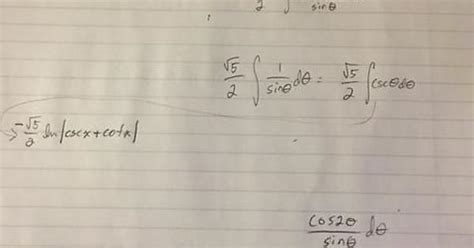 2 ∫ sinθ
√5/2 ∫ 1/sinθ dθ = √5/2 ∫ cscθ dθ
-√5/2 ln|cscx+cotx|
cos2θ/sinθ dθ